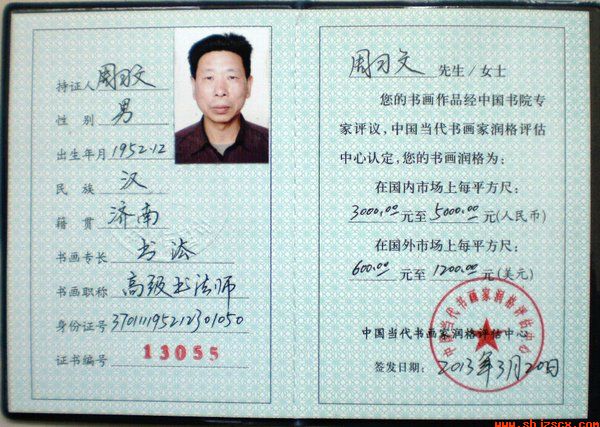 持证人 周习文
性 别 男
出生年月 1952.12
民 族 汉
籍 贯 济南
书画专长 书法
书画职称 高级书法师
身份证号 370111195212301050
证书编号 13055
周习文 先生/女士
您的书画作品经中国书院专
家评议，中国当代书画家润格评估
中心认定，您的书画润格为：
在国内市场上每平方尺：
3000.00元至5000.00元(人民币)
在国外市场上每平方尺：
600.00元至1200.00元(美元)
中国当代书画家润格评估中心
中国当代书画家润格评估中心
签发日期：2013年3月20日
www.shjzscx.com